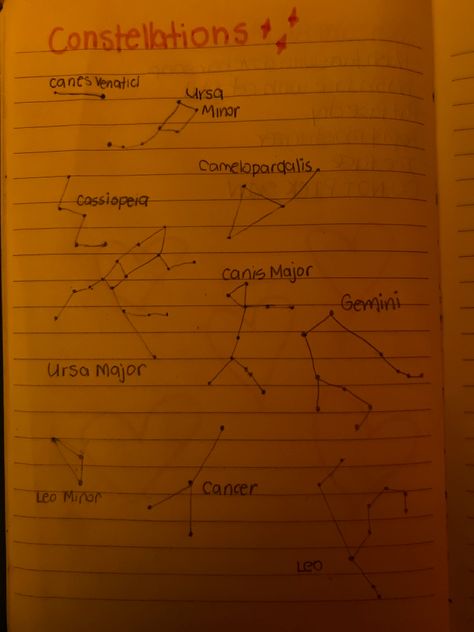 Constellations
Canes Venatici
Ursa
Minor
Camelopardalis
Cassiopera
Canis Major
Gemini
Ursa Major
Leo Minor
Cancer
Leo